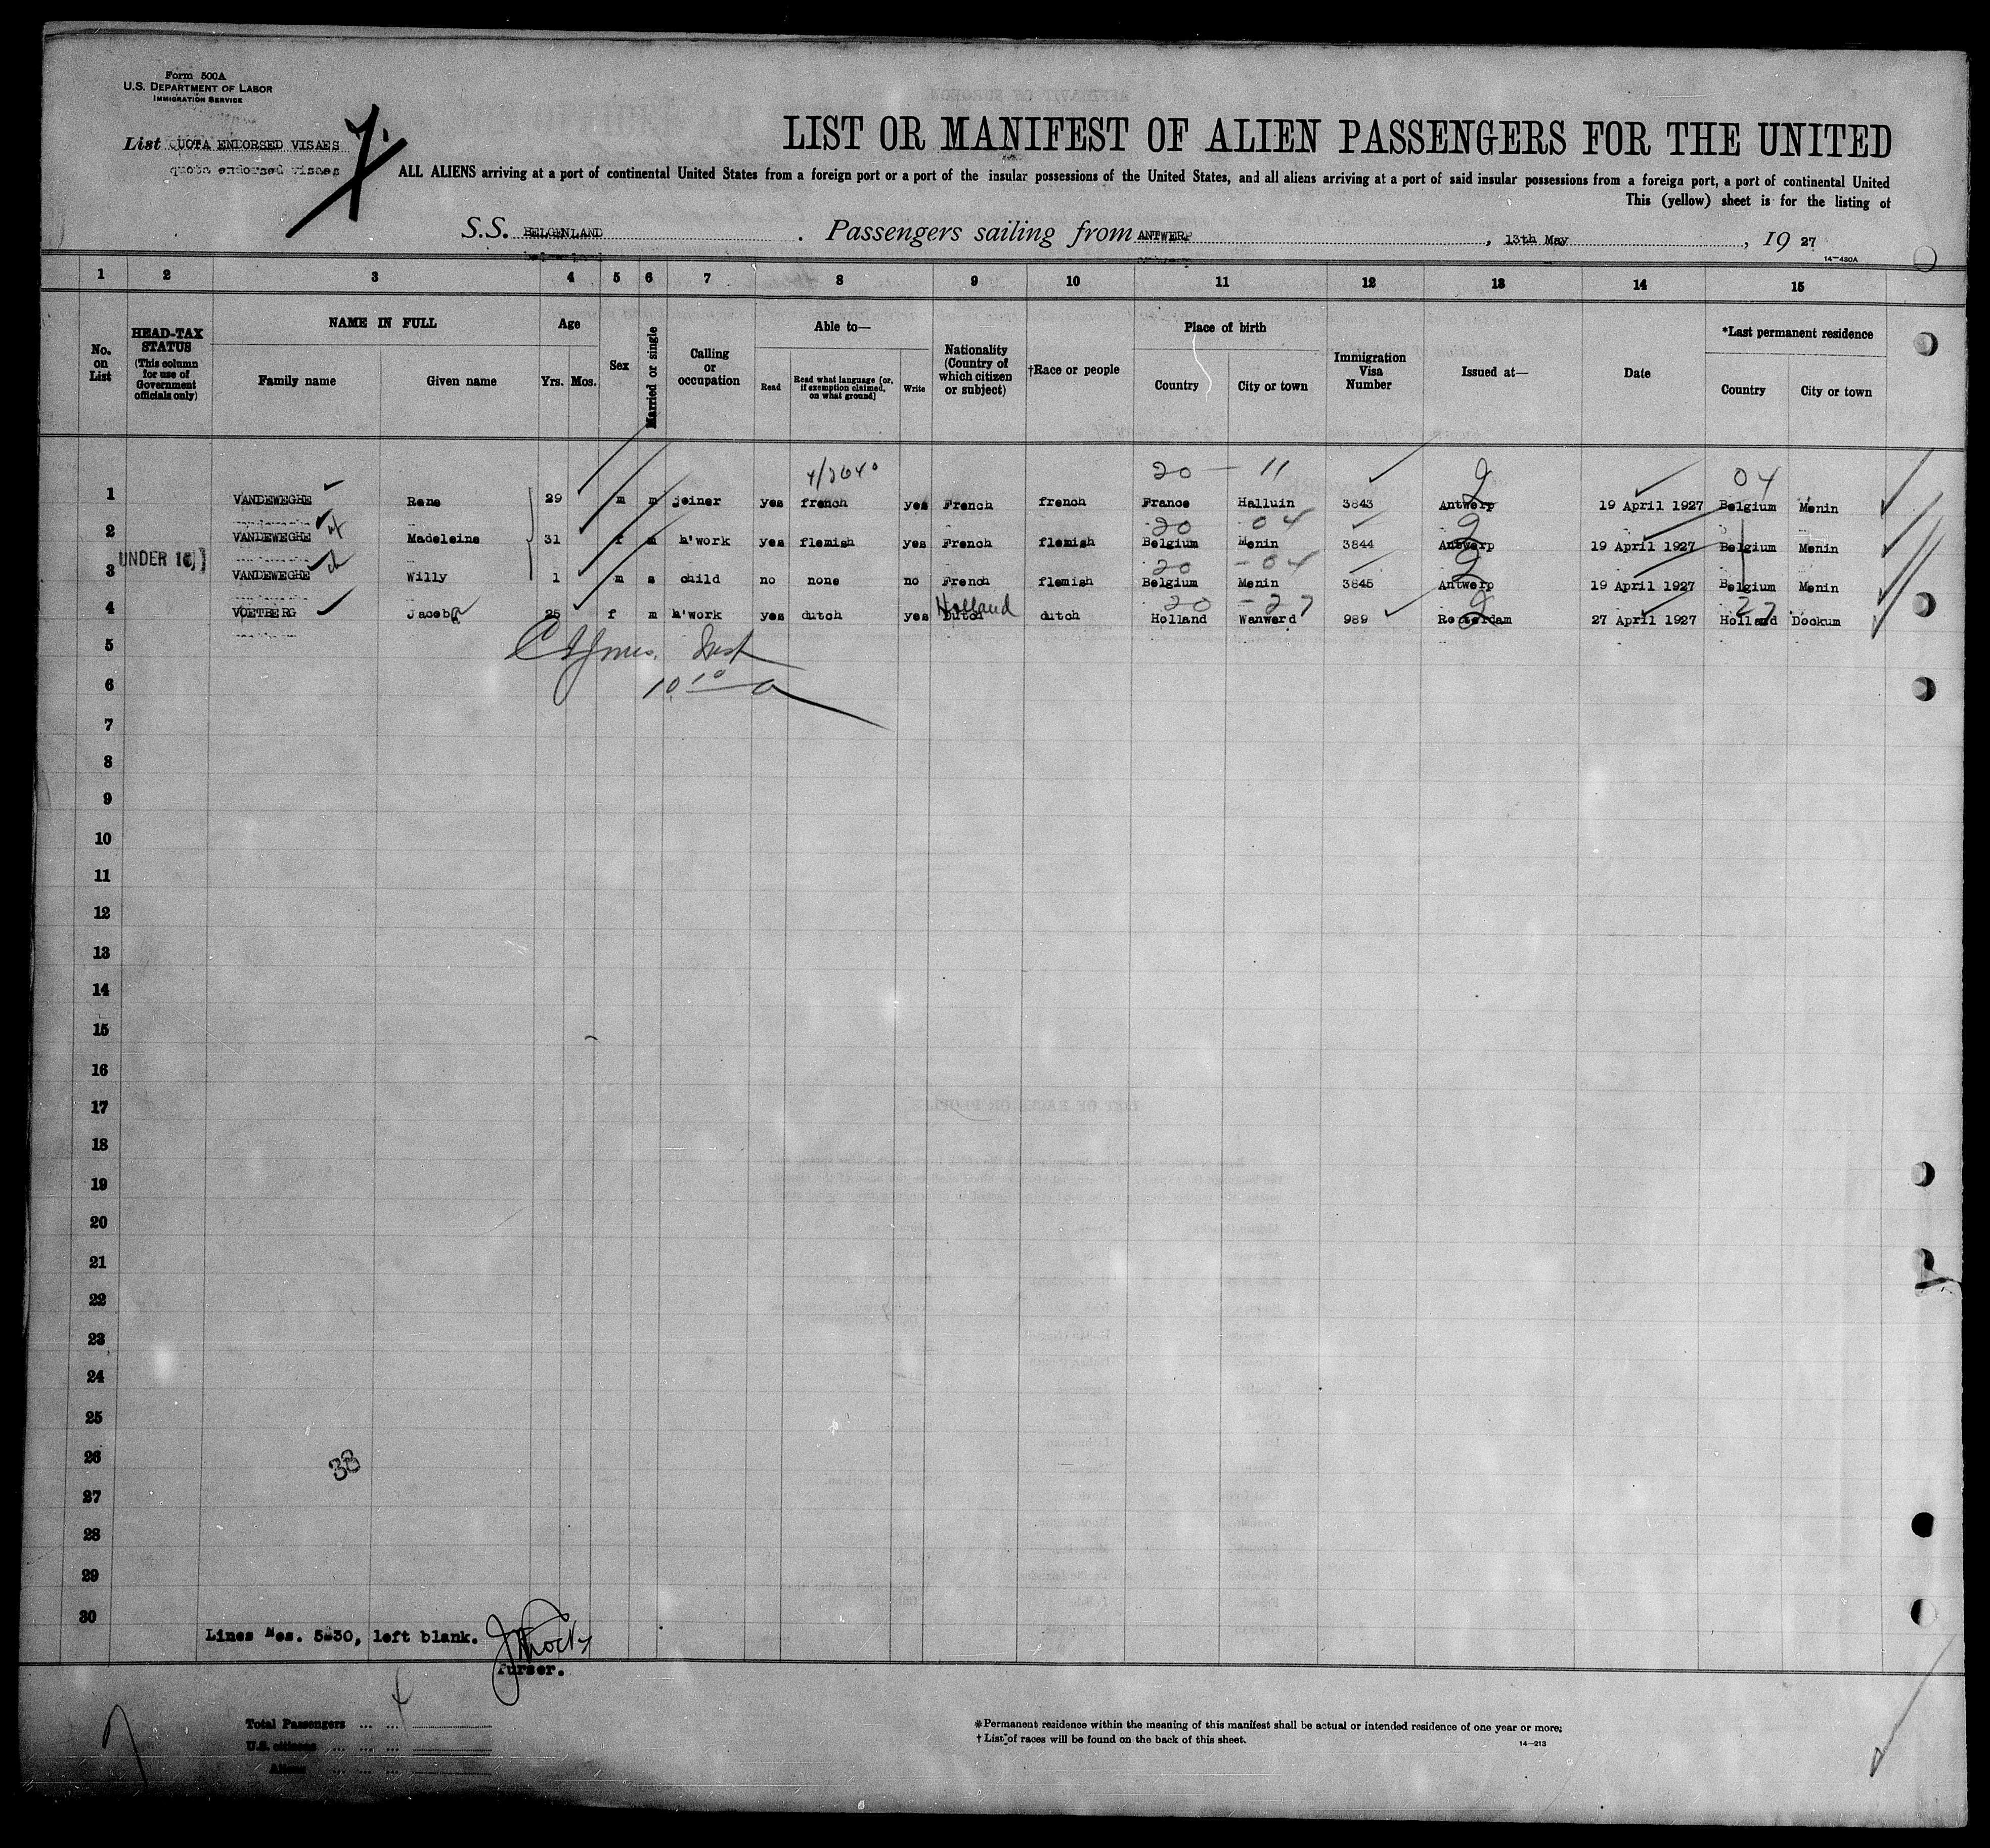 Form 500A
U.S. DEPARTMENT OF LABOR
IMMIGRATION SERVICE
List QUOTA ENDORSED VISAES
quota endorsed visaes
7.
LIST OR MANIFEST OF ALIEN PASSENGERS FOR THE UNITED
ALL ALIENS arriving at a port of continental United States from a foreign port or a port of the insular possessions of the United States, and all aliens arriving at a port of said insular possessions from a foreign port, a port of continental United
This (yellow) sheet is for the listing of
S.S. BELGENLAND . Passengers sailing from ANTWERP , 13th May , 19 27
14—430A
1 2 3 4 5 6 7 8 9 10 11 12 13 14 15
No. on List
HEAD-TAX STATUS (This column for use of Government officials only)
NAME IN FULL
Family name Given name
Age
Yrs. Mos.
Sex
Married or single
Calling or occupation
Able to—
Read Read what language [or, if exemption claimed, on what ground] Write
Nationality (Country of which citizen or subject)
†Race or people
Place of birth
Country City or town
Immigration Visa Number
Issued at—
Date
*Last permanent residence
Country City or town
20 — 11 2 04
1 VANDEWEGHE Rene 29 m m joiner yes french yes French french France Halluin 3843 Antwerp 19 April 1927 Belgium Menin
20 04 2
2 VANDEWEGHE Madeleine 31 f m h'work yes flemish yes French flemish Belgium Menin 3844 Antwerp 19 April 1927 Belgium Menin
UNDER 16
20 - 04 2
3 VANDEWEGHE Willy 1 m s child no none no French flemish Belgium Menin 3845 Antwerp 19 April 1927 Belgium Menin
Holland 20 - 27 2 27
4 VOETBERG Jacoba 25 f m h'work yes dutch yes Dutch dutch Holland Wanwerd 989 Rotterdam 27 April 1927 Holland Dockum
5
6
7
8
9
10
11
12
13
14
15
16
17
18
19
20
21
22
23
24
25
26
38
27
28
29
30
Lines Nos. 5-30, left blank.
Purser.
Total Passengers ... ...
U.S. citizens ... ... ...
Aliens ... ... ...
*Permanent residence within the meaning of this manifest shall be actual or intended residence of one year or more.
† List of races will be found on the back of this sheet.
14—213